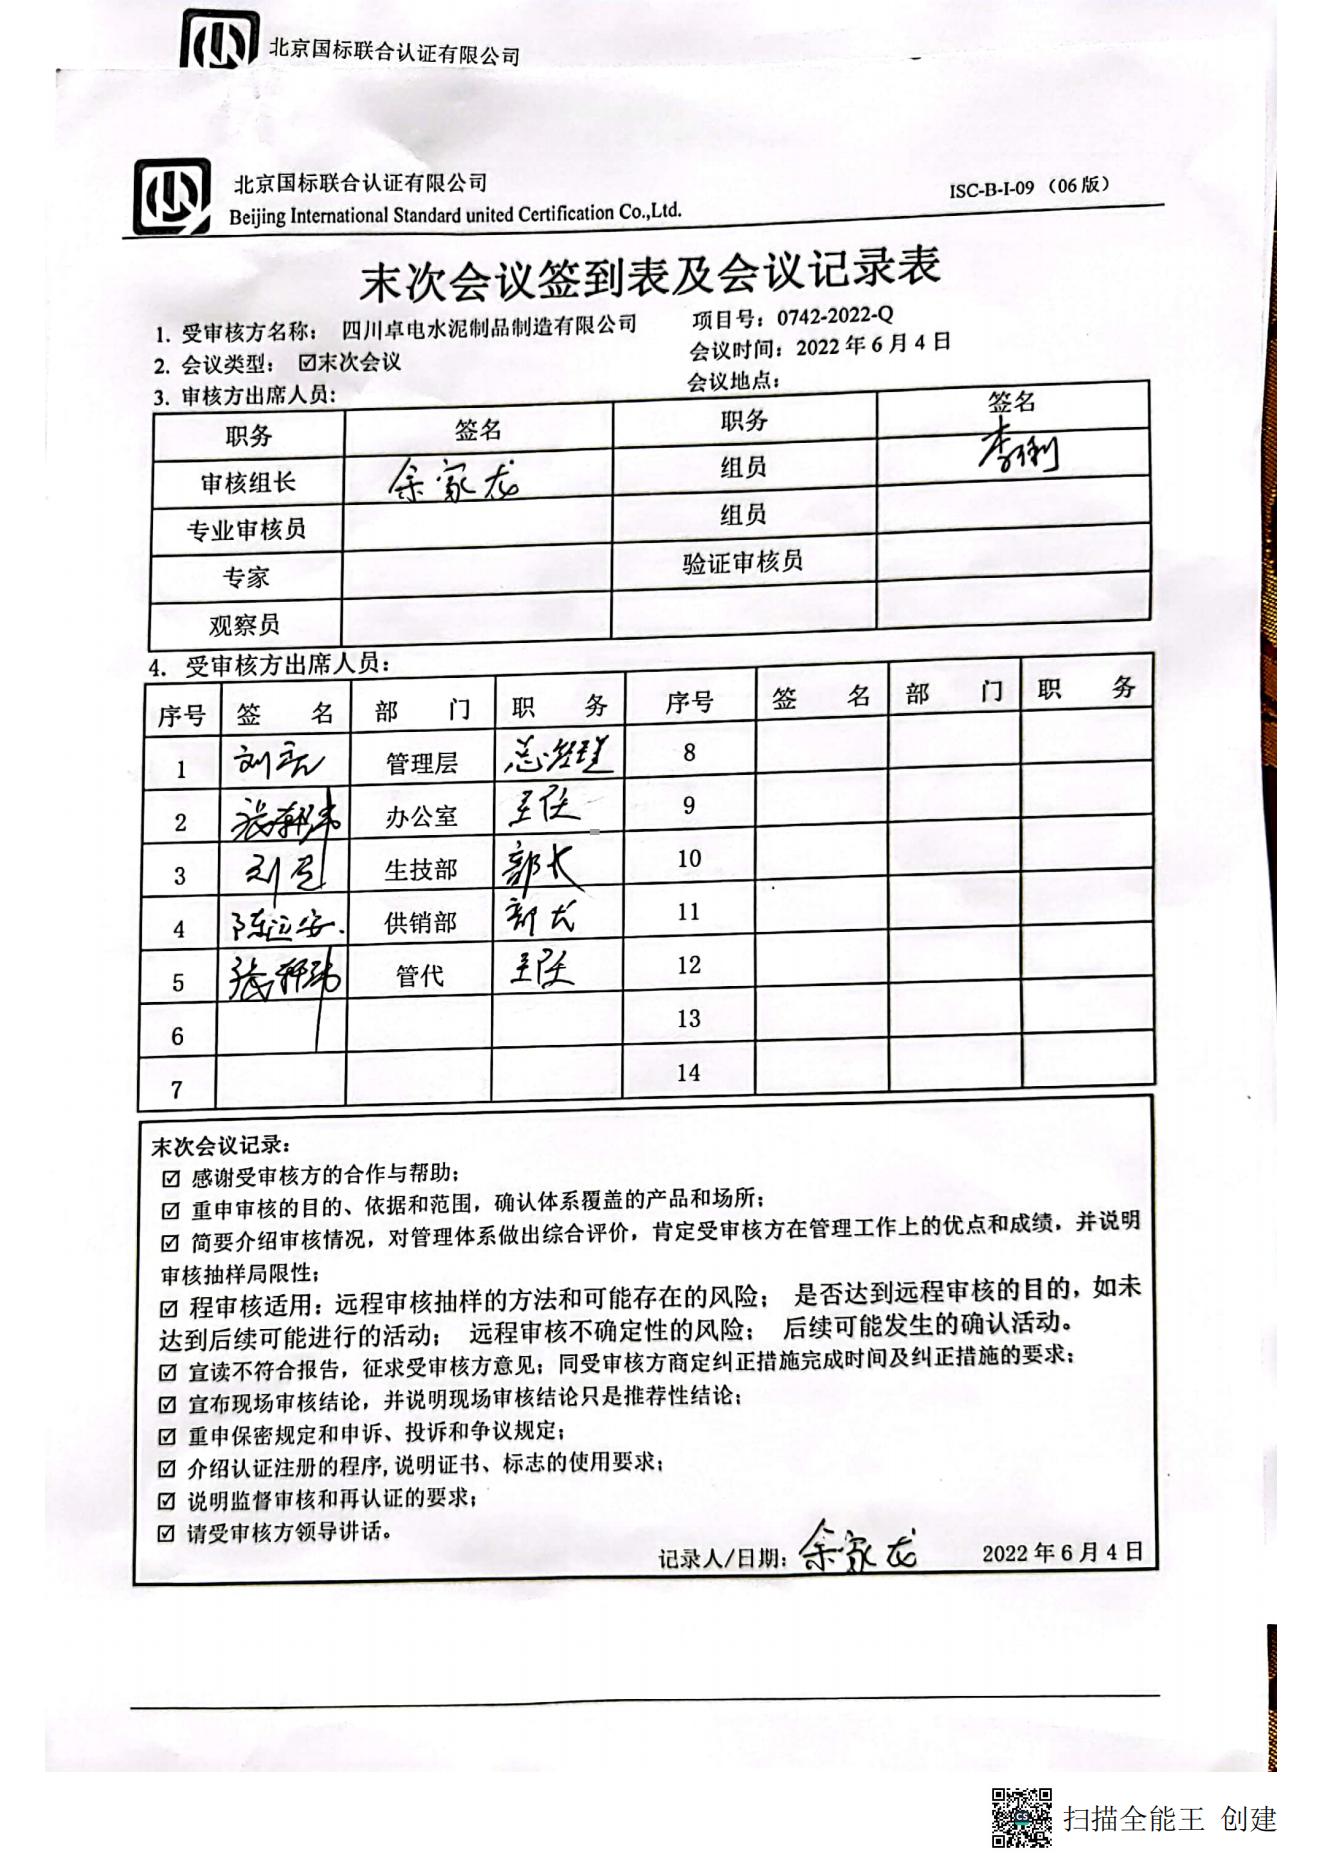 北京国标联合认证有限公司
北京国标联合认证有限公司
Beijing International Standard united Certification Co.,Ltd.
ISC-B-I-09 （06版）
末次会议签到表及会议记录表
1. 受审核方名称： 四川卓电水泥制品制造有限公司 项目号：0742-2022-Q
2. 会议类型： ☑末次会议 会议时间：2022年6月4日
3. 审核方出席人员： 会议地点：
职务 签名 职务 签名
审核组长 余家龙 组员 李俐
专业审核员 组员
专家 验证审核员
观察员
4. 受审核方出席人员：
序号 签 名 部 门 职 务 序号 签 名 部 门 职 务
1 管理层 总经理 8
2 办公室 主任 9
3 生技部 部长 10
4 供销部 部长 11
5 管代 主任 12
6 13
7 14
末次会议记录：
☑ 感谢受审核方的合作与帮助；
☑ 重申审核的目的、依据和范围，确认体系覆盖的产品和场所；
☑ 简要介绍审核情况，对管理体系做出综合评价，肯定受审核方在管理工作上的优点和成绩，并说明
审核抽样局限性；
☑ 程审核适用：远程审核抽样的方法和可能存在的风险； 是否达到远程审核的目的，如未
达到后续可能进行的活动； 远程审核不确定性的风险； 后续可能发生的确认活动。
☑ 宣读不符合报告，征求受审核方意见；同受审核方商定纠正措施完成时间及纠正措施的要求；
☑ 宣布现场审核结论，并说明现场审核结论只是推荐性结论；
☑ 重申保密规定和申诉、投诉和争议规定；
☑ 介绍认证注册的程序,说明证书、标志的使用要求；
☑ 说明监督审核和再认证的要求；
☑ 请受审核方领导讲话。
记录人/日期：余家龙 2022年6月4日
扫描全能王 创建